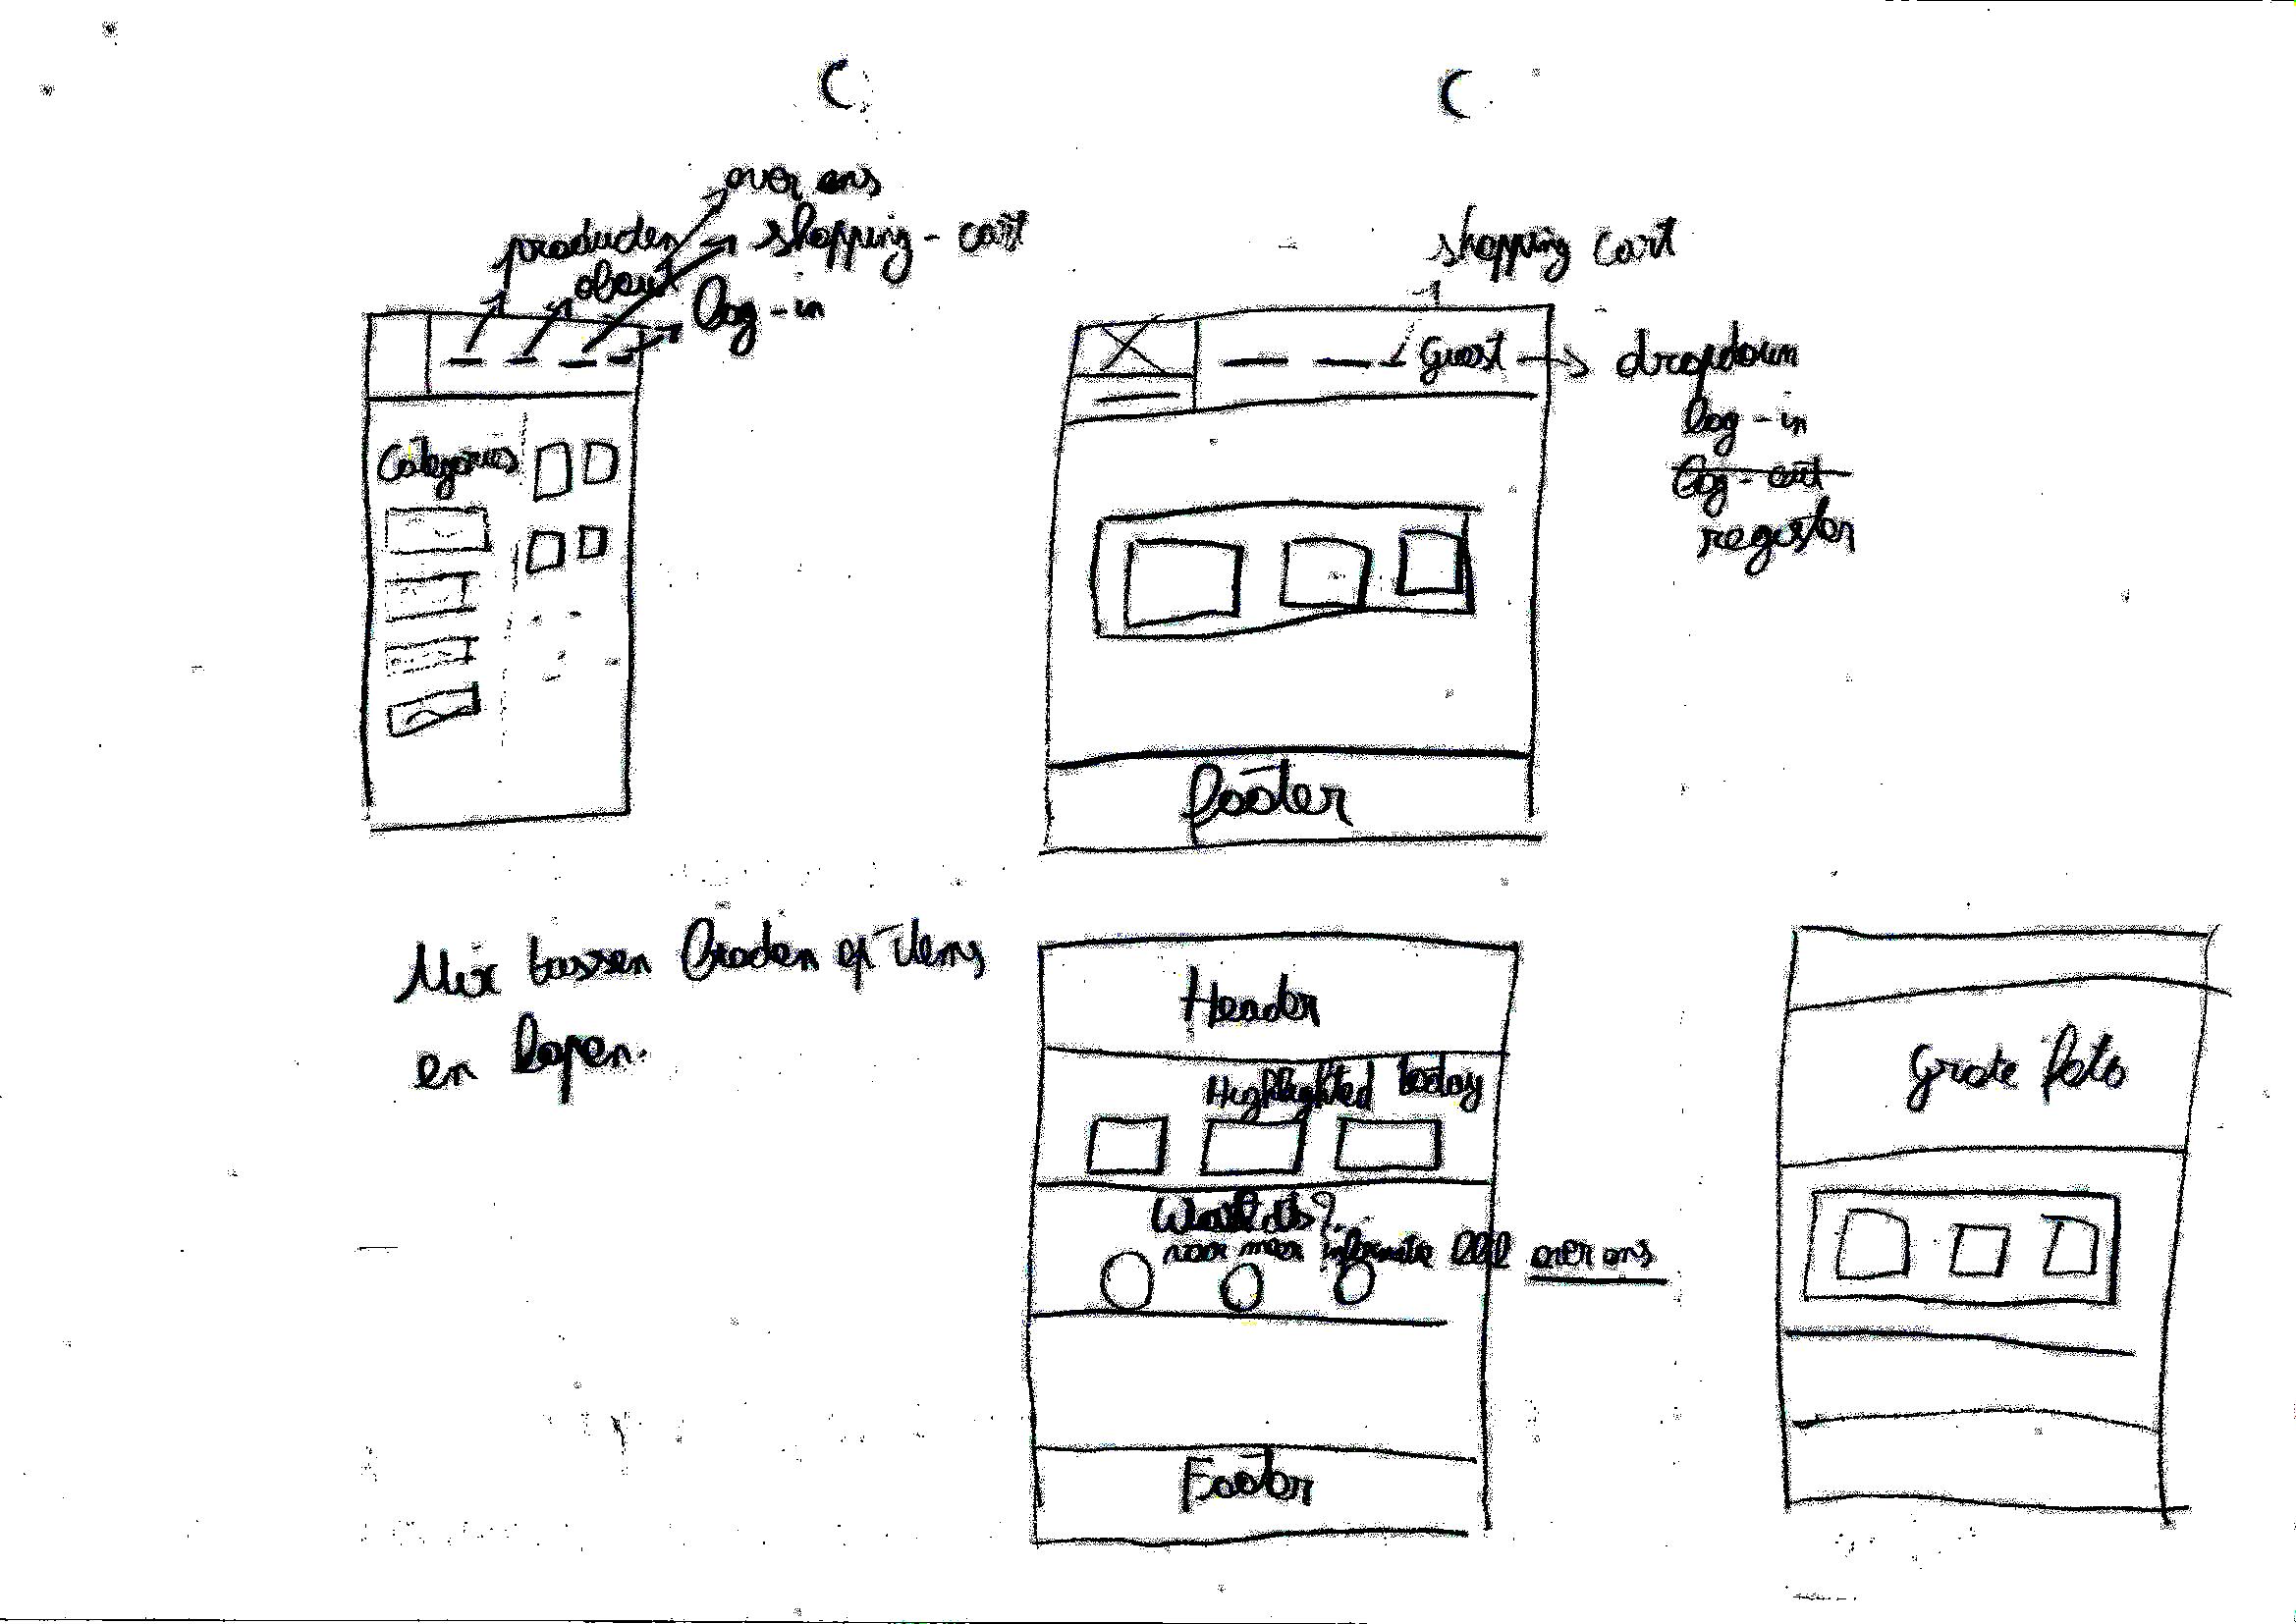 over ons
producten
shopping-cart
about
log-in
Categories
shopping cart
guest
dropdown
log-in
log-out
register
footer
Mix tussen
en kopen.
Header
Highlighted today
voor meer informatie over ons
Footer
grote foto